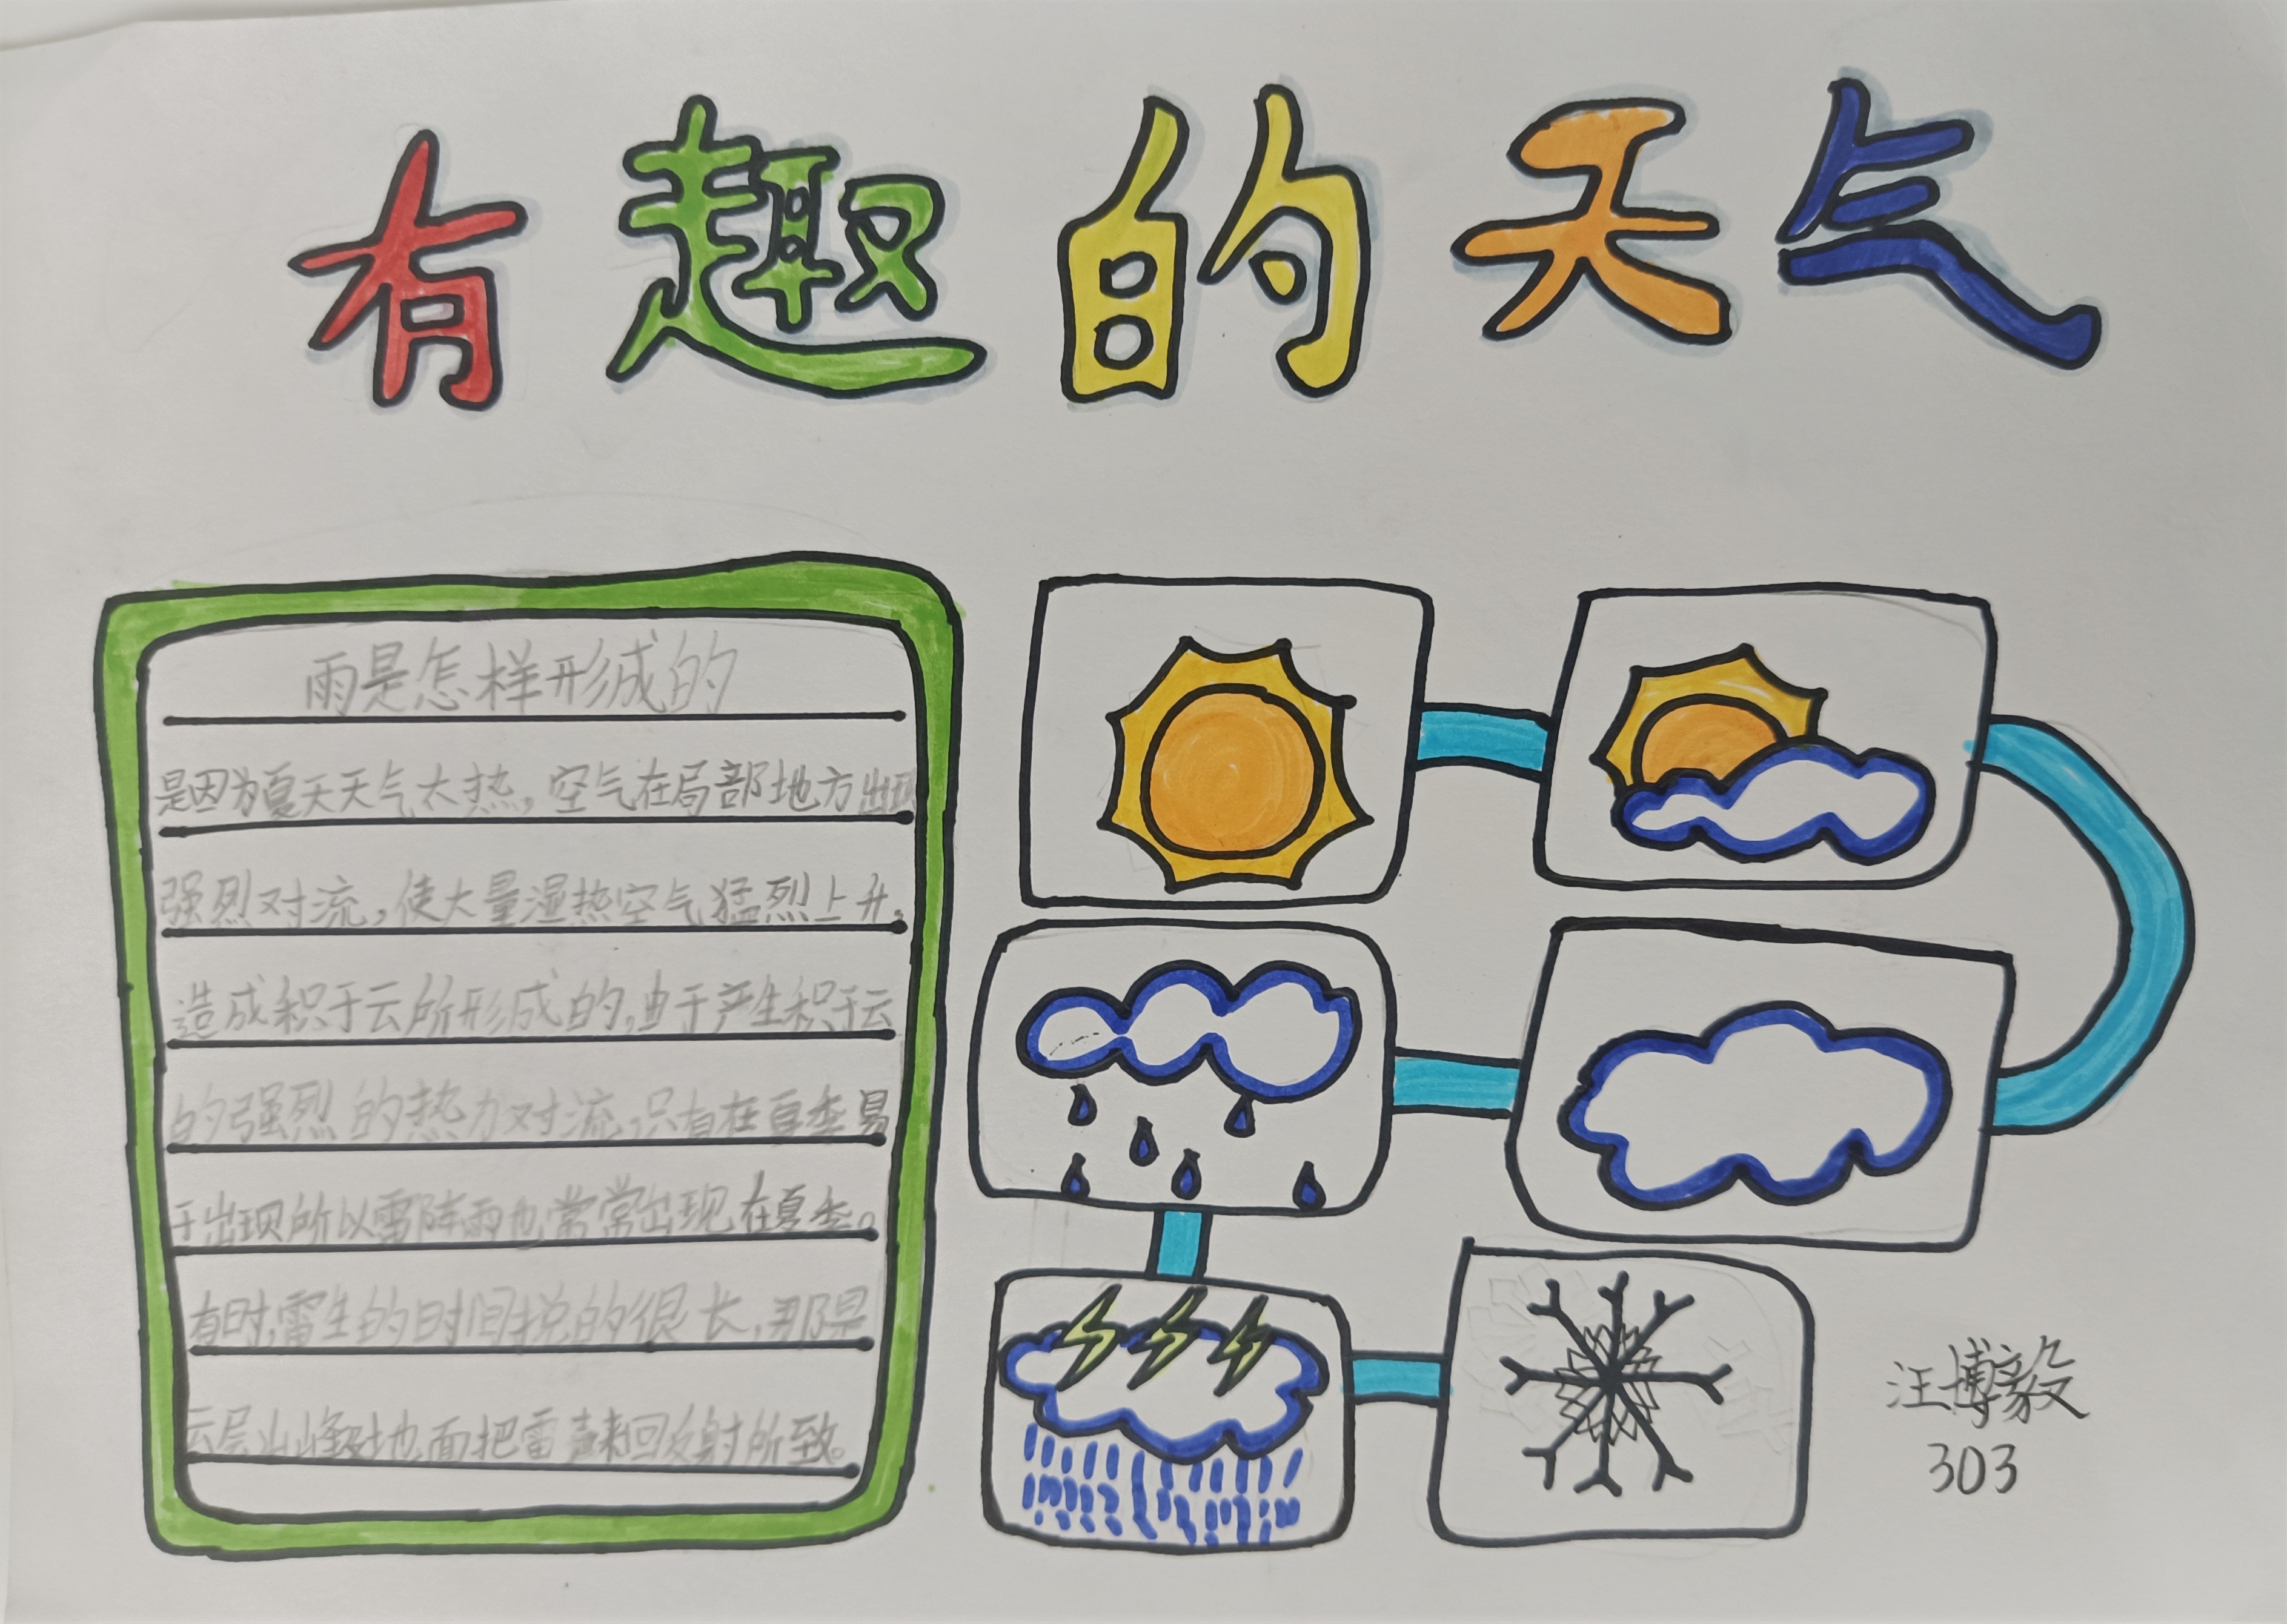 有趣的天气
雨是怎样形成的
是因为夏天天气太热，空气在局部地方出现
强烈对流，使大量湿热空气猛烈上升，
造成积于云所形成的，由于产生积于云
的强烈的热力对流，只有在夏季易
于出现所以雷阵雨也常常出现在夏季。
有时，雷生的时间拖的很长，那是
云层山峰地面把雷声来回反射所致。
汪博毅
303